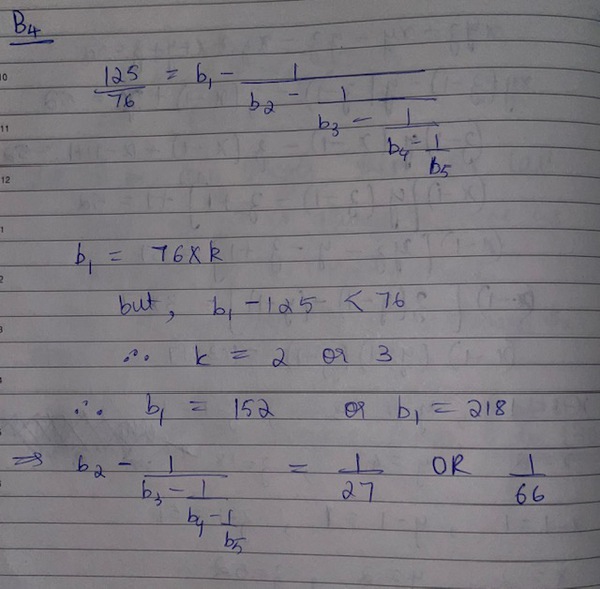 B4
125/76 = b1 - 1/(b2 - 1/(b3 - 1/(b4 - 1/b5)))
b1 = 76 x k
but, b1 - 125 < 76
∴ k = 2 or 3
∴ b1 = 152 or b1 = 218
⇒ b2 - 1/(b3 - 1/(b4 - 1/b5)) = 1/27 OR 1/66